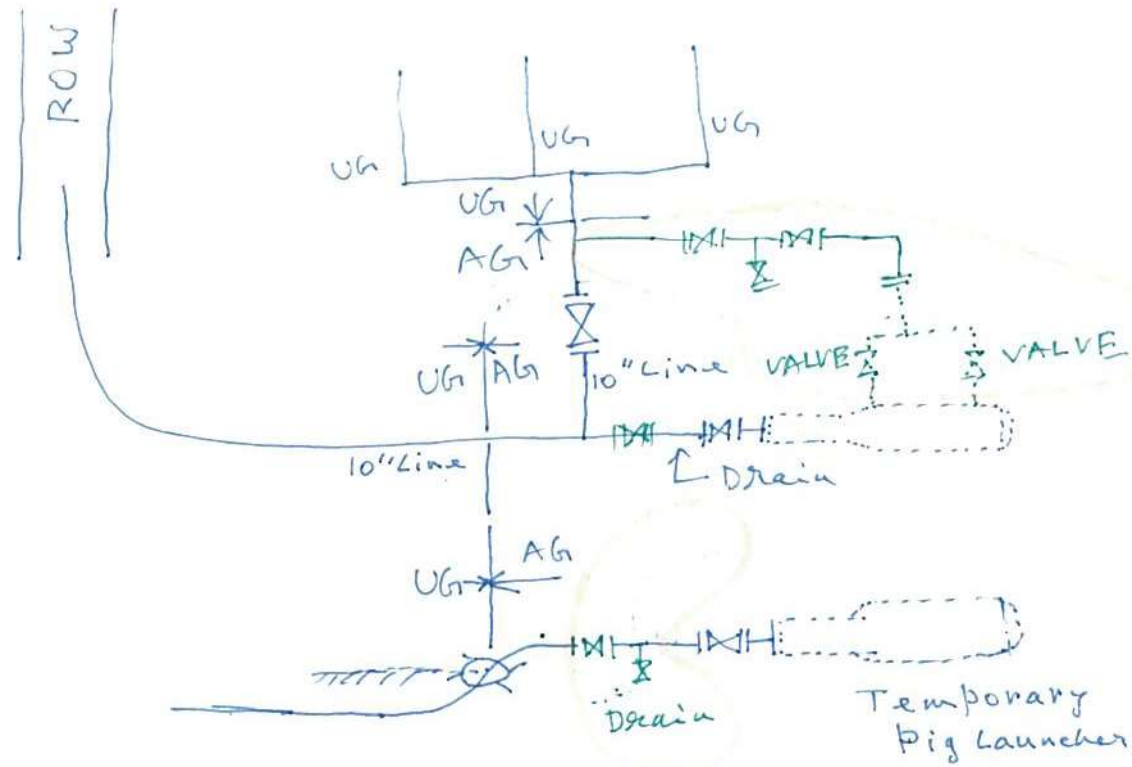 ROW
UG
UG
UG
UG
AG
UG AG
10" Line
VALVE
VALVE
10" Line
Drain
AG
UG
Drain
Temporary
Pig Launcher